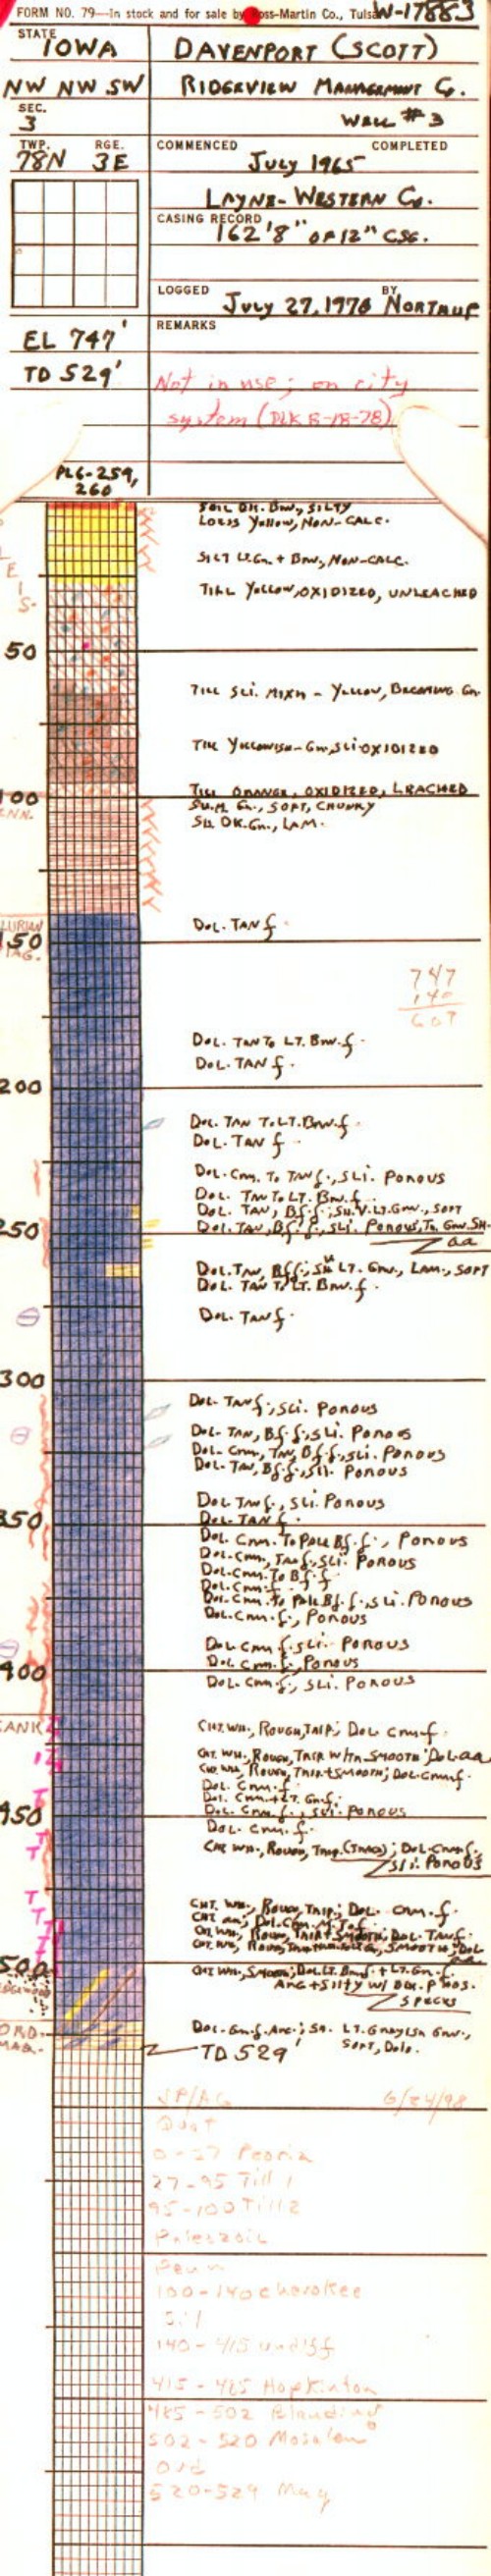 FORM NO. 79—In stock and for sale by Ross-Martin Co., Tulsa W-17883
STATE
IOWA
DAVENPORT (SCOTT)
NW NW SW
RIDGEVIEW MANAGEMENT Co.
SEC.
3
WELL #3
TWP. RGE.
78N 3E
COMMENCED COMPLETED
JULY 1965
LAYNE-WESTERN Co.
CASING RECORD
162'8" OF 12" CSG.
LOGGED BY
JULY 27, 1978 NORTHUP
EL 747'
REMARKS
TD 529'
Not in use; on city
system (DLK 8-18-78)
PLG-259,
260
SOIL DK. BRN, SILTY
LOESS YELLOW, NON-CALC.
SILT LT.GN. + BRN, NON-CALC.
TILL YELLOW, OXIDIZED, UNLEACHED
50
TILL SLI. MIXN - YELLOW, BECOMING GN.
TILL YELLOWISH-GN, SLI-OXIDIZED
TILL ORANGE, OXIDIZED, LEACHED
100
SH. M. GN., SOFT, CHUNKY
SH. DK. GN., LAM.
DOL. TAN f.
150
747
140
607
DOL. TAN TO LT. BRN. f.
DOL. TAN f.
200
DOL. TAN TO LT. BRN. f.
DOL. TAN f.
DOL. CRM. TO TAN f., SLI. POROUS
DOL. TAN TO LT. BRN. f.
DOL. TAN, BF. f.; SH. V. LT. GRN., SOFT
DOL. TAN, BF. f., SLI. POROUS, TO GRN. SH.
aa
250
DOL. TAN, BF f.; SH LT. GRN., LAM., SOFT
DOL. TAN TO LT. BRN. f.
DOL. TAN f.
300
DOL. TAN f., SLI. POROUS
DOL. TAN, BF. f., SLI. POROUS
DOL. CRM, TAN, BF. f., SLI. POROUS
DOL. TAN, BF. f., SLI. POROUS
DOL TAN f., SLI. POROUS
350
DOL. TAN f.
DOL. CRM. TO PALE BF. f., POROUS
DOL. CRM, TAN f., SLI. POROUS
DOL. CRM. TO BF. f.
DOL. CRM. f.
DOL. CRM. TO PALE BF. f., SLI. POROUS
DOL. CRM. f., POROUS
DOL. CRM f. SLI. POROUS
DOL. CRM. f., POROUS
400
DOL. CRM. f., SLI. POROUS
CHT. WH., ROUGH, TRIP; DOL CRM f.
CHT. WH., ROUGH, TRIP WITH SMOOTH; DOL. aa
CHT. WH., ROUGH, TRIP + SMOOTH; DOL. CRM f.
DOL. CRM. f.
DOL. CRM. + LT. GN. f.
450
DOL. CRM. f., SLI. POROUS
DOL. CRM. f.
CHT WH., ROUGH, TRIP. (TRACE); DOL. CRM f.
SLI. POROUS
CHT. WH., ROUGH, TRIP; DOL. CRM. f.
CHT aa; DOL. CRM. M. f.
CHT WH., ROUGH, TRIP + SMOOTH; DOL. TAN f.
500
CHT WH., SMOOTH; DOL LT. BRN. + LT. GN. f.
ARG + SILTY W/ BLK. PHOS.
SPECKS
ORD.
MAQ.
DOL. GN. f. ARG.; SH. LT. GRAYISH GRN.,
SOFT, DOLO.
TD 529'
JP/AG 6/24/98
Quat
0-27 Peoria
27-95 Till 1
95-100 Till 2
Paleozoic
Penn
100-140 Cherokee
Sil
140-415 undiff
415-485 Hopkinton
485-502 Blanding
502-520 Mosalem
Ord
520-529 Maq